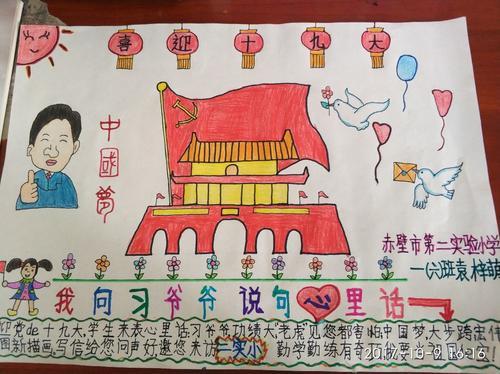 喜迎十九大
中國夢
赤壁市第二实验小学
一(六)班袁梓
我向习爷爷说句心里话
迎党de十九大,学生来表心里话.习爷爷功绩大"老虎"见您都害怕.中国梦大步跨,
图新描画.写信给您问声好,邀您来访二实小 勤学勤练有奇
2017-10-9 16:16